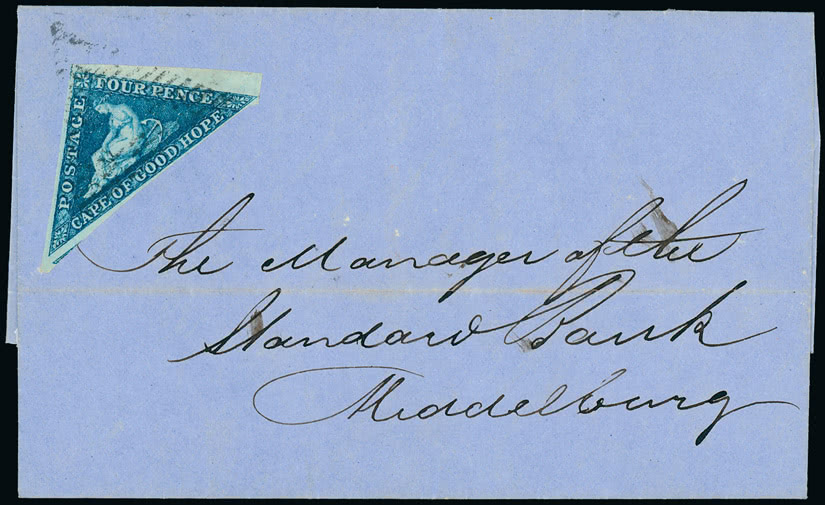 FOUR PENCE
POSTAGE
CAPE OF GOOD HOPE
The Manager of the
Standard Bank
Middelburg